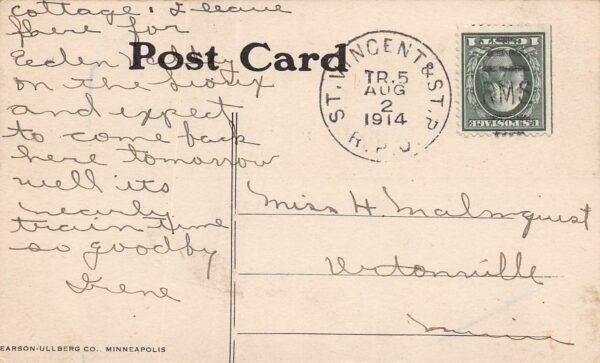 cottage. I leave
here for
Eeden Valley
on the Sioux
and expect
to come back
here tomorrow
well its
nearly
train time
so goodby
Irene
Post Card
ST. VINCENT & ST. P.
TR. 5
AUG
2
1914
R.P.O.
RMS
U.S. POSTAGE
Miss H. Malmquist
Ortonville
Minn
EARSON-ULLBERG CO., MINNEAPOLIS